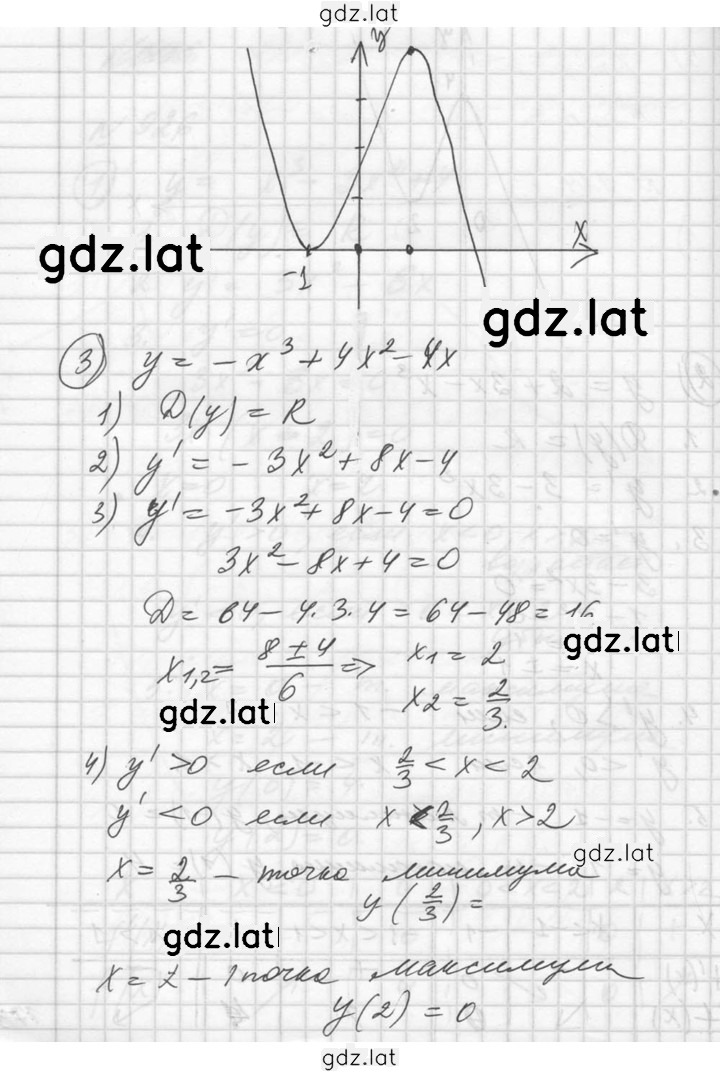 gdz.lat
y
x
-1
gdz.lat
gdz.lat
3) y = -x³ + 4x² - 4x
1) D(y) = R
2) y' = -3x² + 8x - 4
3) y' = -3x² + 8x - 4 = 0
3x² - 8x + 4 = 0
D = 64 - 4·3·4 = 64 - 48 = 16
gdz.lat
x₁,₂ = (8 ± 4)/6 => x₁ = 2
x₂ = 2/3.
gdz.lat
4) y' > 0 если 2/3 < x < 2
y' < 0 если x < 2/3, x > 2
gdz.lat
x = 2/3 - точка минимума
y(2/3) =
gdz.lat
x = 2 - точка максимума
y(2) = 0
gdz.lat